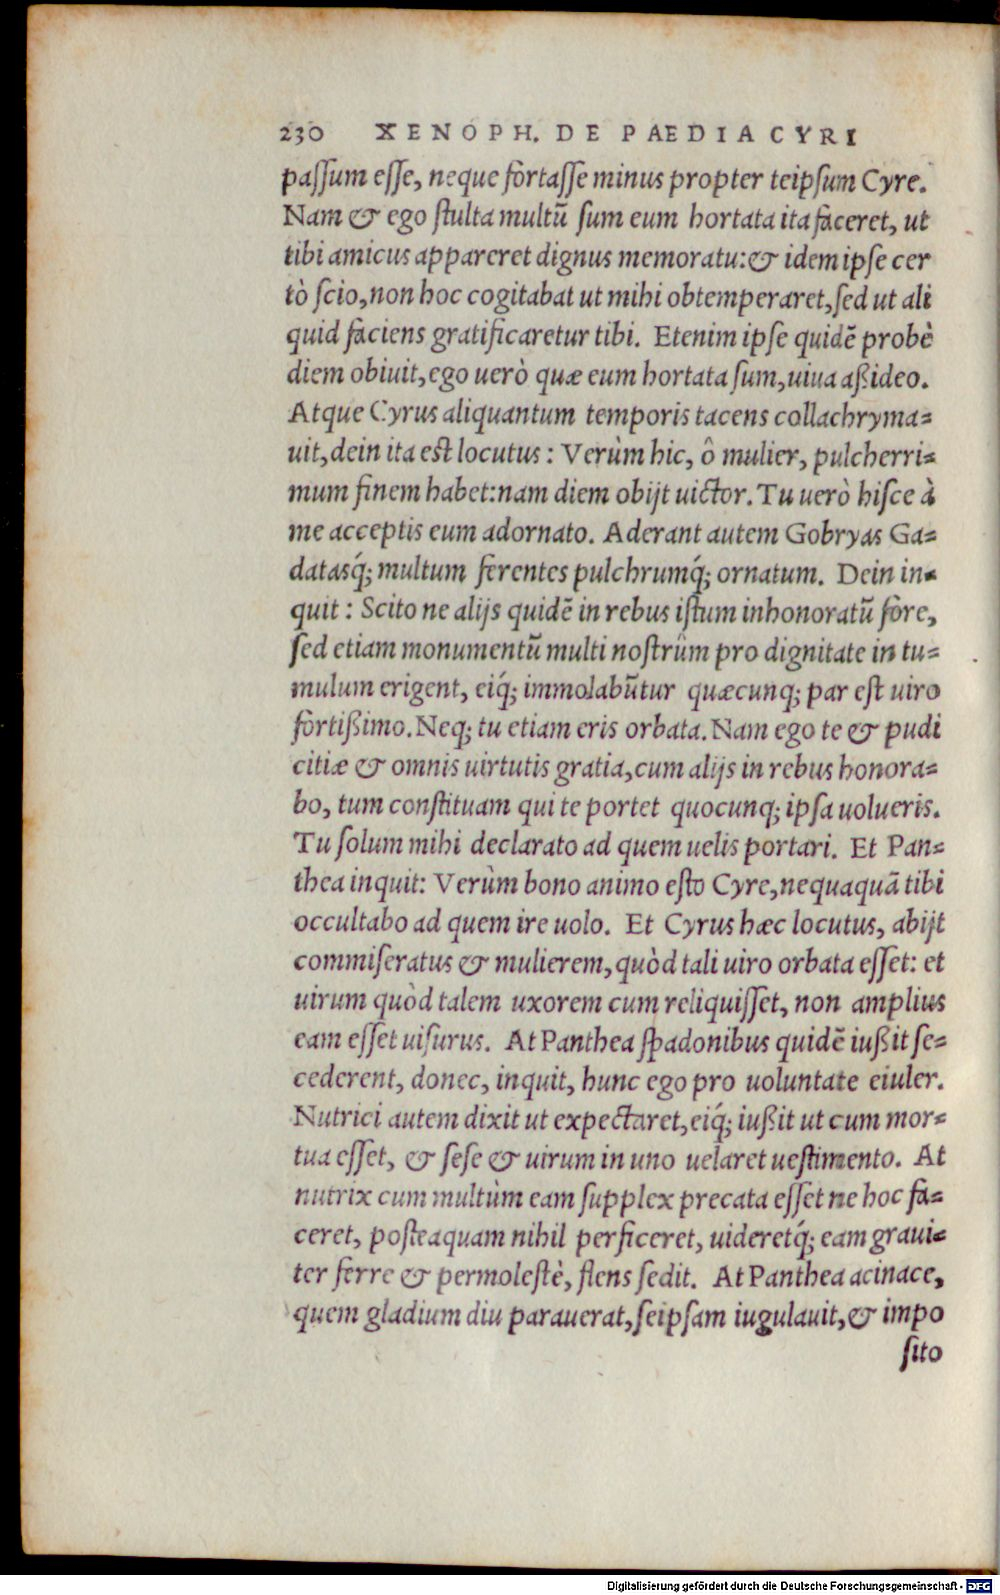 230 XENOPH. DE PAEDIA CYRI
passum esse, neque fortasse minus propter teipsum Cyre.
Nam & ego stulta multũ sum eum hortata ita faceret, ut
tibi amicus appareret dignus memoratu: & idem ipse cer
tò scio, non hoc cogitabat ut mihi obtemperaret, sed ut ali
quid faciens gratificaretur tibi. Etenim ipse quidẽ probè
diem obiuit, ego uerò quæ eum hortata sum, uiua aßideo.
Atque Cyrus aliquantum temporis tacens collachryma-
uit, dein ita est locutus: Verùm hic, ô mulier, pulcherri-
mum finem habet: nam diem obijt uictor. Tu uerò hisce à
me acceptis eum adornato. Aderant autem Gobryas Ga-
datasq́; multum ferentes pulchrumq́; ornatum. Dein in-
quit: Scito ne alijs quidẽ in rebus istum inhonoratũ fore,
sed etiam monumentũ multi nostrûm pro dignitate in tu-
mulum erigent, eiq́; immolabũtur quæcunq; par est uiro
fortißimo. Neq; tu etiam eris orbata. Nam ego te & pudi
citiæ & omnis uirtutis gratia, cum alijs in rebus honora-
bo, tum constituam qui te portet quocunq; ipsa uolueris.
Tu solum mihi declarato ad quem uelis portari. Et Pan-
thea inquit: Verùm bono animo esto Cyre, nequaquã tibi
occultabo ad quem ire uolo. Et Cyrus hæc locutus, abijt
commiseratus & mulierem, quòd tali uiro orbata esset: et
uirum quòd talem uxorem cum reliquisset, non amplius
eam esset uisurus. At Panthea spadonibus quidẽ iußit se-
cederent, donec, inquit, hunc ego pro uoluntate eiuler.
Nutrici autem dixit ut expectaret, eiq́; iußit ut cum mor-
tua esset, & sese & uirum in uno uelaret uestimento. At
nutrix cum multùm eam supplex precata esset ne hoc fa-
ceret, posteaquam nihil perficeret, uideretq́; eam graui-
ter ferre & permolestè, flens sedit. At Panthea acinace,
quem gladium diu parauerat, seipsam iugulauit, & impo
sito
Digitalisierung gefördert durch die Deutsche Forschungsgemeinschaft - DFG